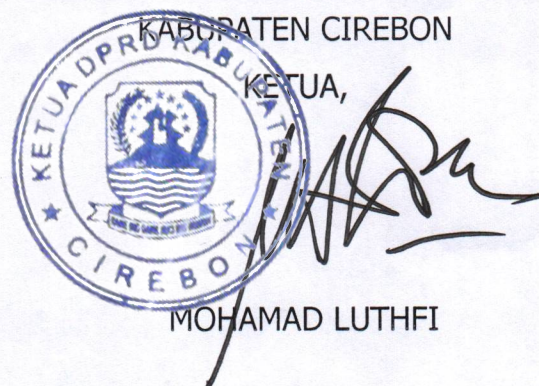 KABUPATEN CIREBON
KETUA,
KETUA DPRD KABUPATEN
CIREBON
MOHAMAD LUTHFI